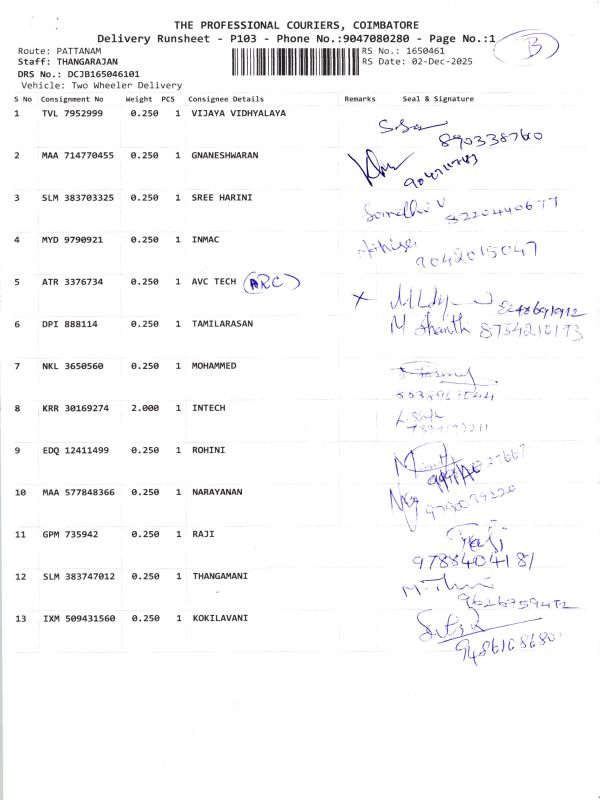 THE PROFESSIONAL COURIERS, COIMBATORE
Delivery Runsheet - P103 - Phone No.:9047080280 - Page No.:1
B
Route: PATTANAM
RS No.: 1650461
Staff: THANGARAJAN
RS Date: 02-Dec-2025
DRS No.: DCJB165046101
Vehicle: Two Wheeler Delivery
S No Consignment No Weight PCS Consignee Details Remarks Seal & Signature
1 TVL 7952999 0.250 1 VIJAYA VIDHYALAYA
8903387660
2 MAA 714770455 0.250 1 GNANESHWARAN
3 SLM 383703325 0.250 1 SREE HARINI
8220440677
4 MYD 9790921 0.250 1 INMAC
9042015047
5 ATR 3376734 0.250 1 AVC TECH (ARC)
6 DPI 888114 0.250 1 TAMILARASAN
M Shanth 8754210173
7 NKL 3650560 0.250 1 MOHAMMED
8 KRR 30169274 2.000 1 INTECH
9 EDQ 12411499 0.250 1 ROHINI
10 MAA 577848366 0.250 1 NARAYANAN
11 GPM 735942 0.250 1 RAJI
Raji
9788404181
12 SLM 383747012 0.250 1 THANGAMANI
13 IXM 509431560 0.250 1 KOKILAVANI